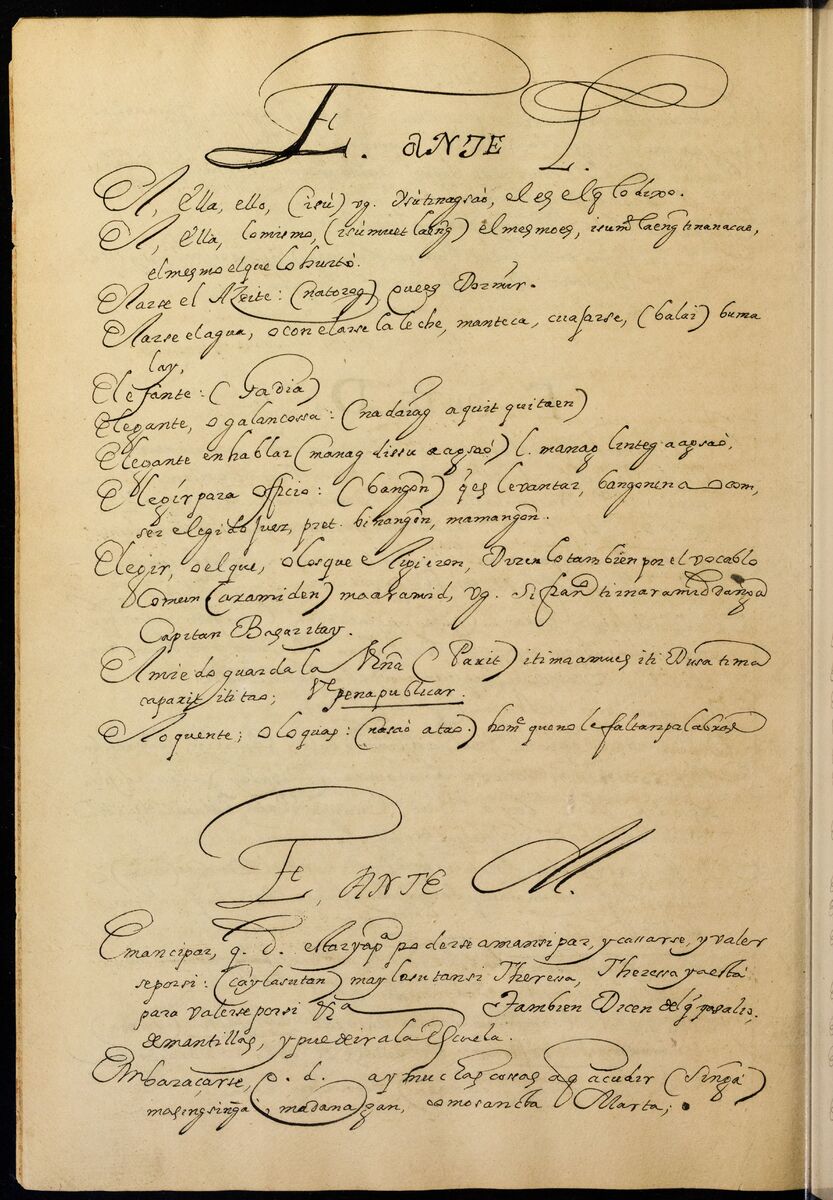 E. ANTE L.
El, Ella, ello, (isù) vg. Isùtinagsaò, el es el q̃ lo dixo.
El, Ella, lo mismo, (isùmuet laeng) el mesmo es, isumᵗ laeng tinanacao,
el mesmo el que lo hurtò.
Elarse el Azeite: (natorog) que es Dormir.
Elarse el agua, o con elarse la leche, manteca, cuajarse, (balai) buma
lay,
Elefante: (Gadia)
Elegante, o galan cossa: (nadarag a quit quitaen)
Elegante en hablar (manag dissu a agsaò) l. manag linteg a agsaò,
Elegir para officio: (bangon) q̃ es levantar, bangonina o com,
ser elegido Juez, pret. binangon, mamangon.
Elegir, o el que, o los que eligieron, Dizen lo tambien por el vocablo
Comun (aramiden) maaramid, vg. si
Capitan Bagaritay.
El miedo guarda la Viña (Parit) iti
caparit iti tao; Vᵗ pena publicar.
Eloquente; o loquaz: (nasaò a tao.) homᵉ que no le faltan palabras
E, ANTE M.
Emancipar, q. d. estar yapᵃ poderse amansipar, y cassarse, y valer
se por si: (caylasutan) maylasutan si Theresa, Theressa ya està
para valerse por si Vᵗᵃ Tambien Dicen del q̃ ya salio,
de mantillas, y puede ir a la Escuela.
Embaraçarse, q. d. ay muchas cosas a q̃ acudir (Singà)
masingsingà, madanagan, como sancta Marta;